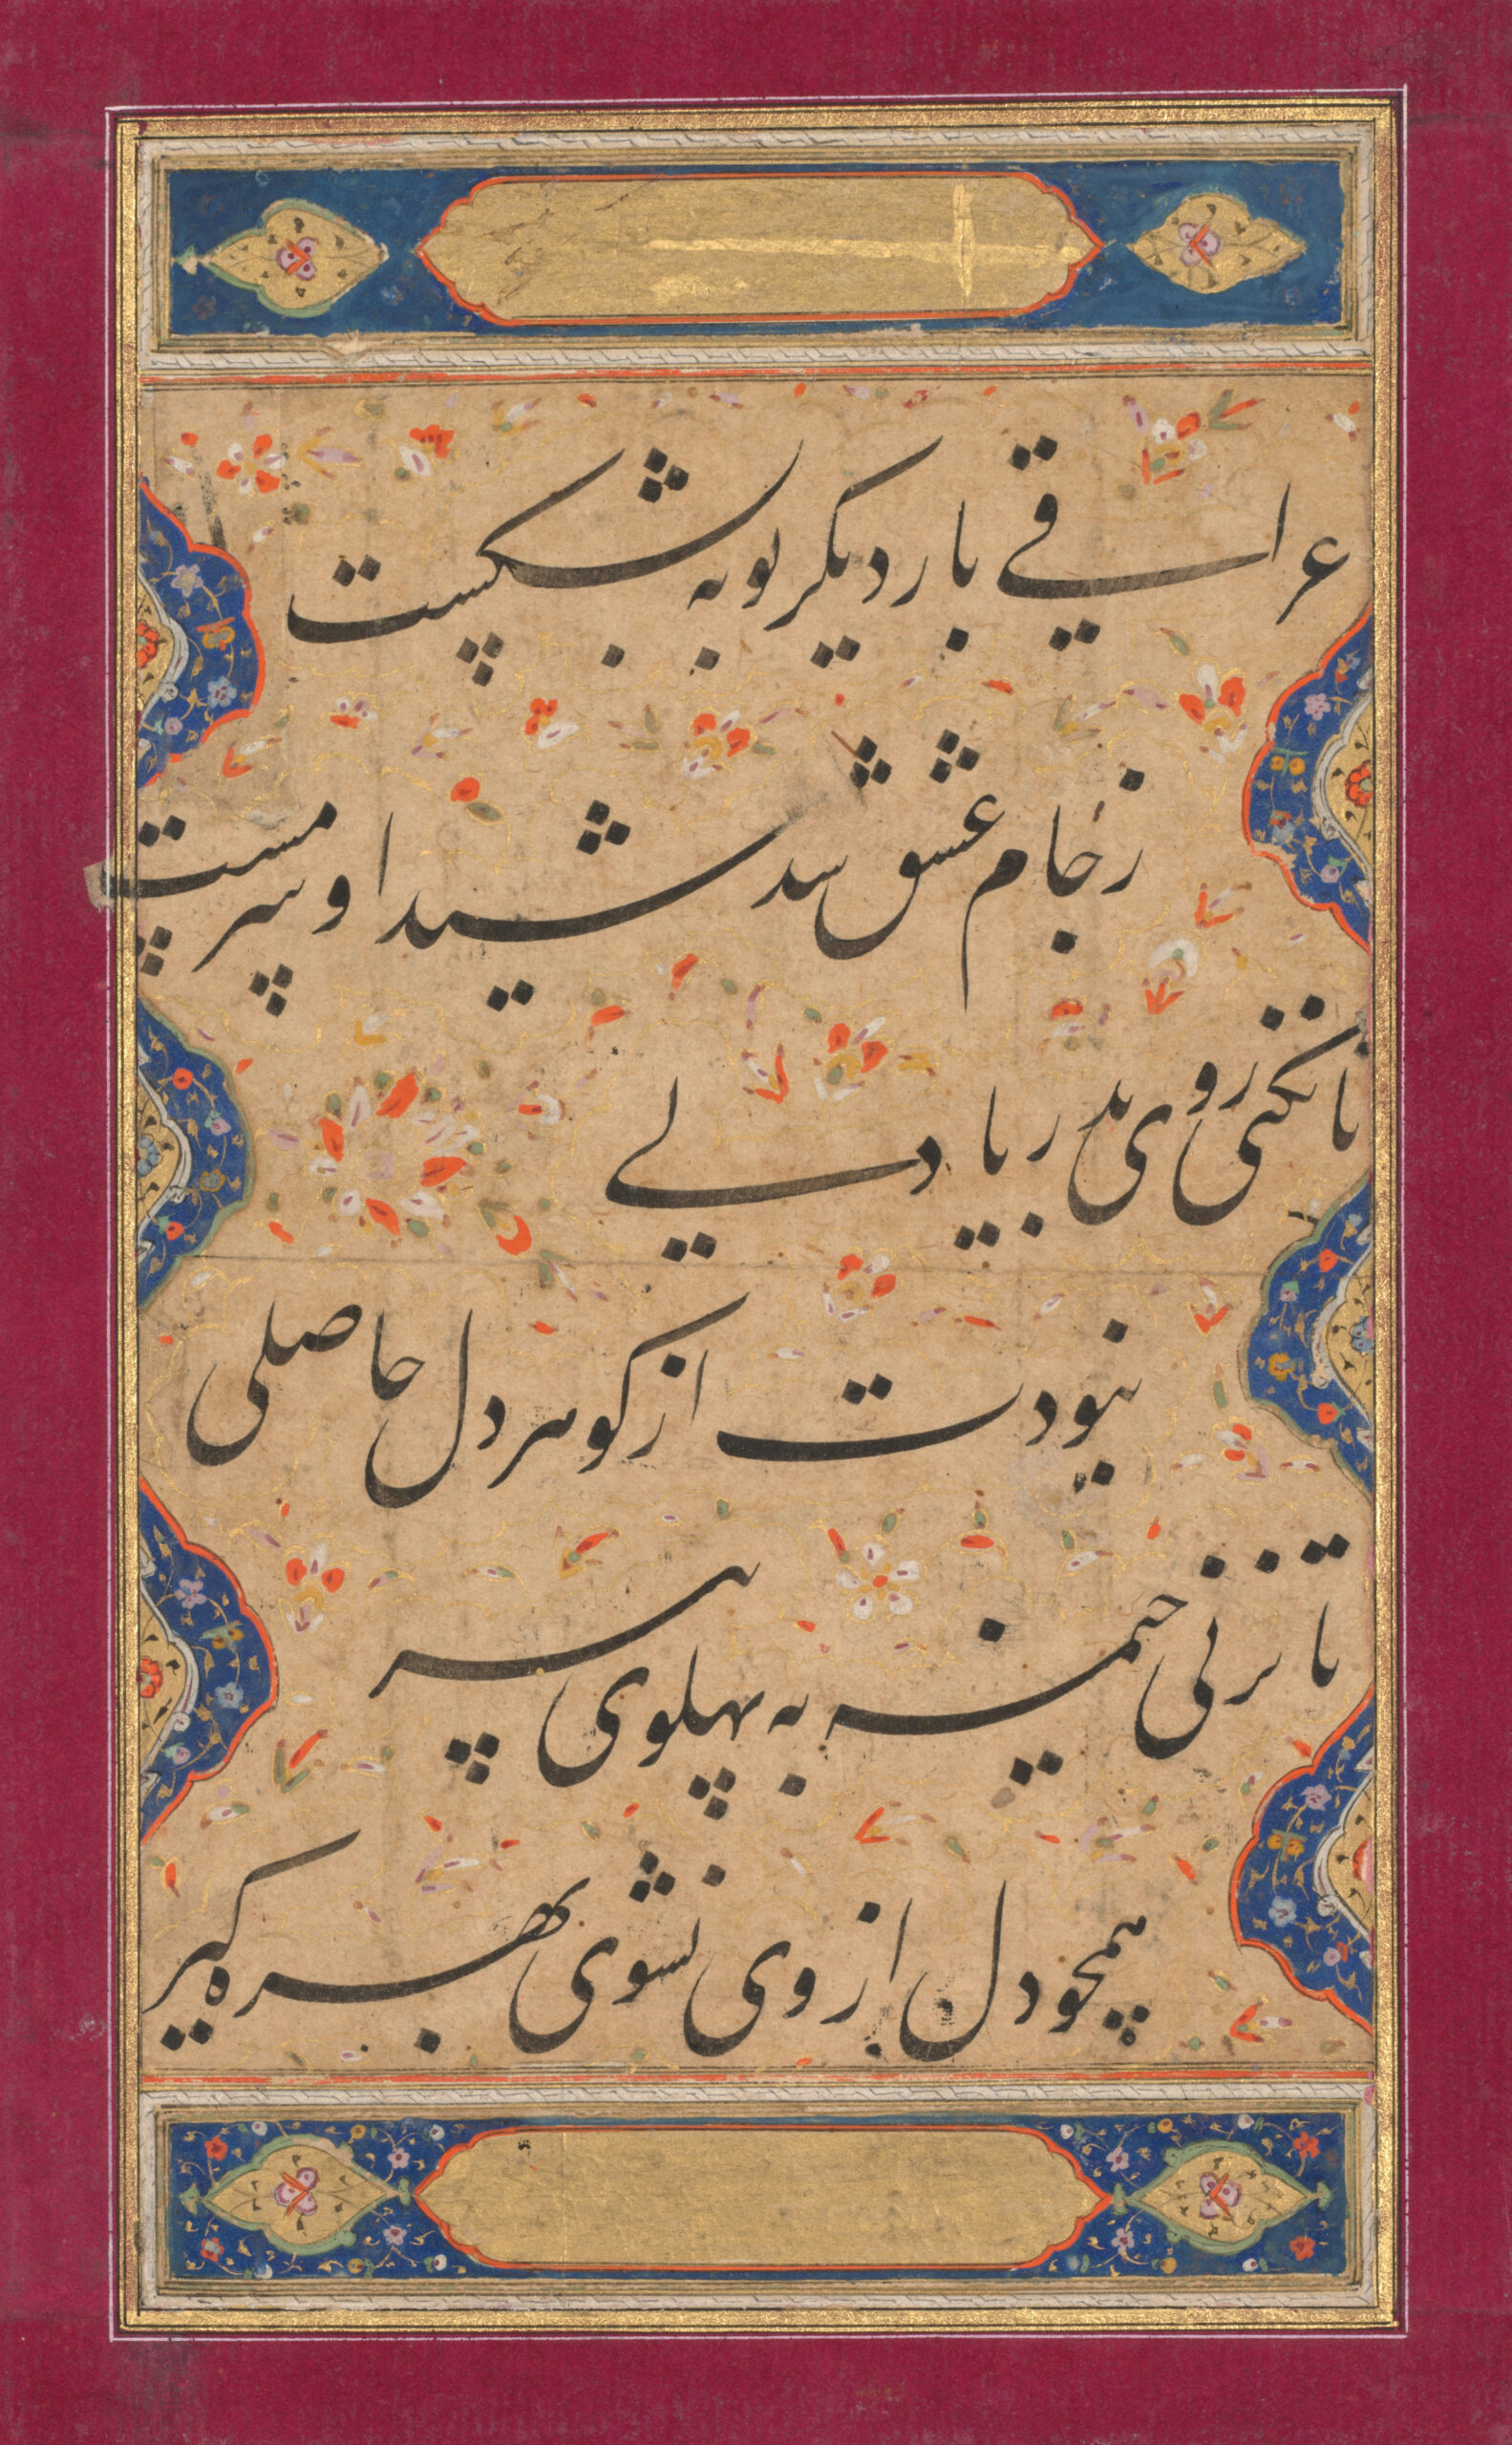 عراقی بار دیگر توبه بشکست
ز جام عشق شد شیدا و سرمست
تا نکنی روی بدریا دلی
نبودت از گوهر دل حاصلی
تا نزنی خیمه به پهلوی سیر
همچو دل از وی نشوی بهره گیر